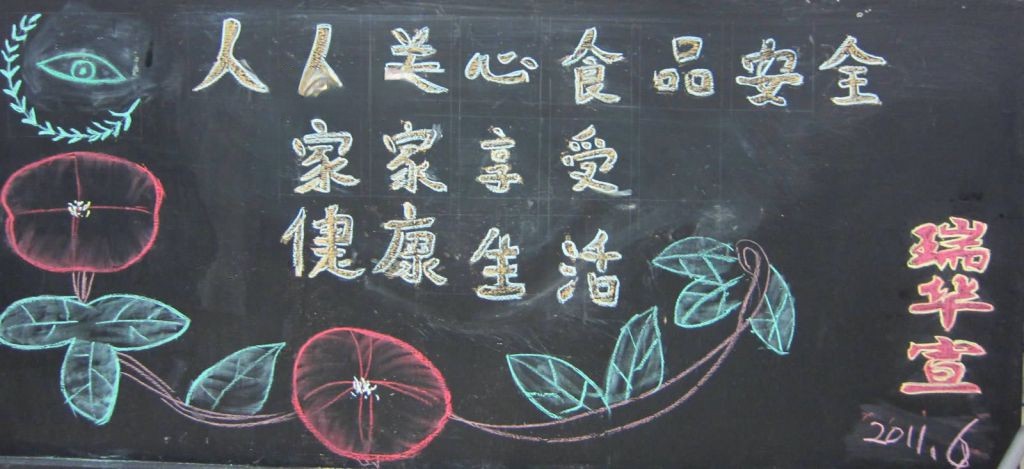 人人关心食品安全
家家享受
健康生活
瑞华宣
2011.6